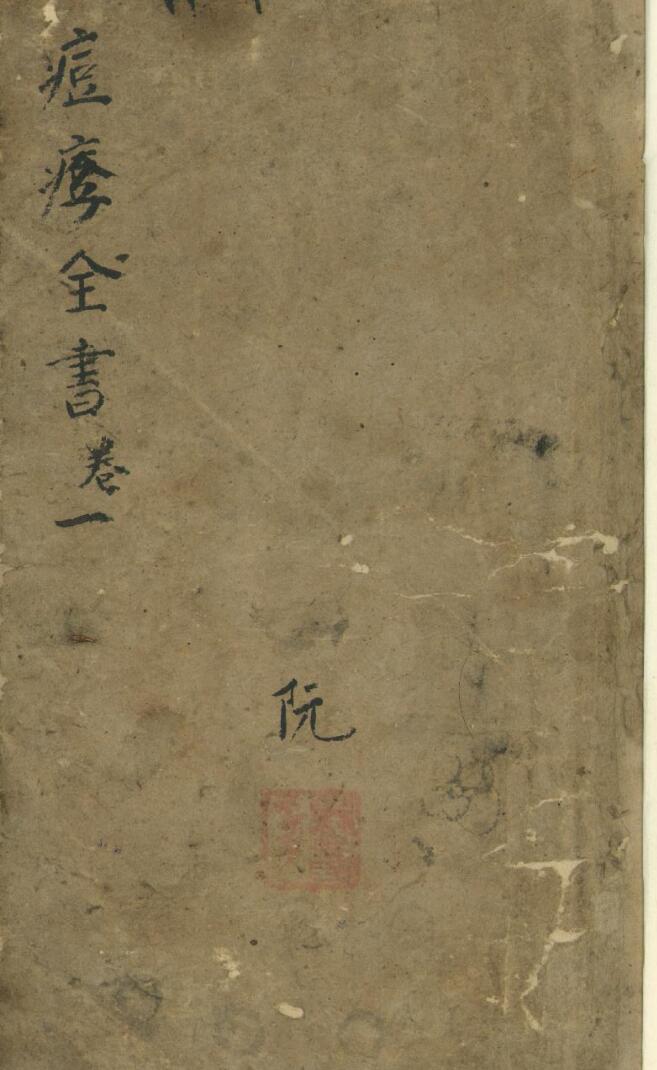 痘疹全書卷一
阮